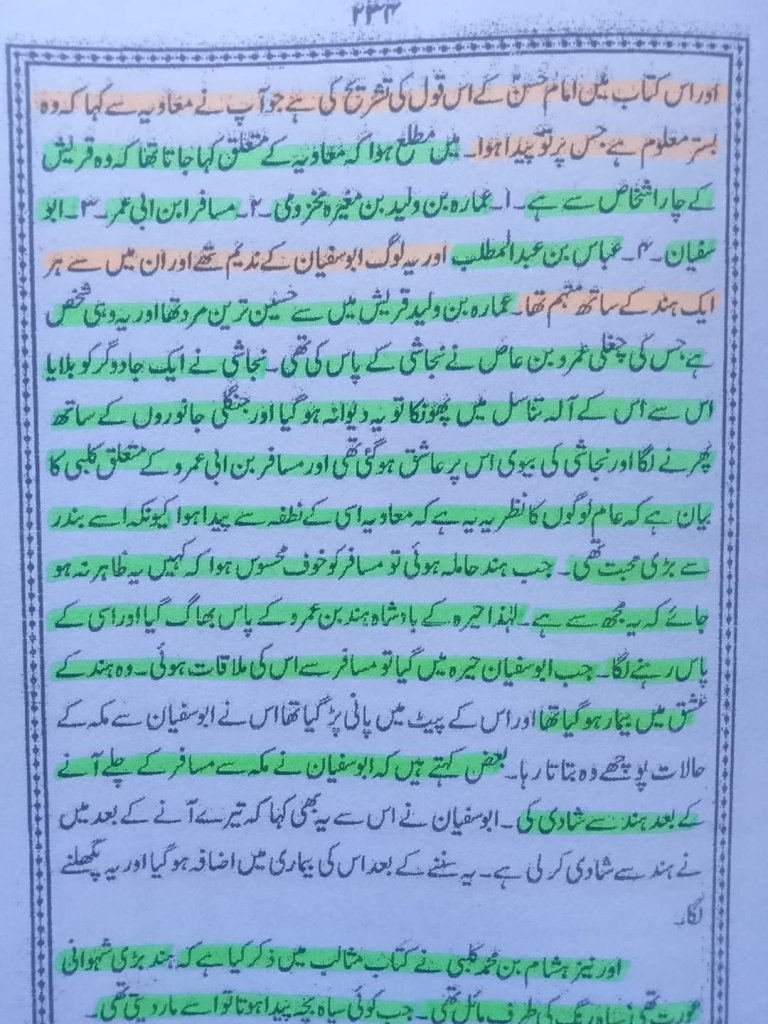 ۲۳۴
اور اس کتاب میں امام حسنؑ کے اس قول کی تشریح کی ہے جو آپ نے معاویہ سے کہا کہ وہ
بستر معلوم ہے جس پر تو پیدا ہوا۔ میں مطلع ہوا کہ معاویہ کے متعلق کہا جاتا تھا کہ وہ قریش
کے چار اشخاص سے ہے۔ ۱۔ عمارہ بن ولید بن مغیرہ مخزومی۔ ۲۔ مسافر ابن ابی عمر۔ ۳۔ ابو
سفیان۔ ۴۔ عباس بن عبدالمطلب اور یہ لوگ ابوسفیان کے ندیم تھے اور ان میں سے ہر
ایک ہند کے ساتھ متہم تھا۔ عمارہ بن ولید قریش میں سے حسین ترین مرد تھا اور یہ وہی شخص
ہے جس کی چغلی عمرو بن عاص نے نجاشی کے پاس کی تھی۔ نجاشی نے ایک جادوگر کو بلایا
اس سے اس کے آلہ تناسل میں پھونکا تو یہ دیوانہ ہو گیا اور جنگلی جانوروں کے ساتھ
پھرنے لگا اور نجاشی کی بیوی اس پر عاشق ہو گئی تھی اور مسافر بن ابی عمرو کے متعلق کلبی کا
بیان ہے کہ عام لوگوں کا نظریہ یہ ہے کہ معاویہ اسی کے نطفہ سے پیدا ہوا کیونکہ اسے بندر
سے بڑی محبت تھی۔ جب ہند حاملہ ہوئی تو مسافر کو خوف محسوس ہوا کہ کہیں یہ ظاہر نہ ہو
جائے کہ یہ مجھ سے ہے۔ لہٰذا حیرہ کے بادشاہ ہند بن عمرو کے پاس بھاگ گیا اور اسی کے
پاس رہنے لگا۔ جب ابوسفیان حیرہ میں گیا تو مسافر سے اس کی ملاقات ہوئی۔ وہ ہند کے
عشق میں بیمار ہو گیا تھا اور اس کے پیٹ میں پانی پڑ گیا تھا اس نے ابوسفیان سے مکہ کے
حالات پوچھے وہ بتاتا رہا۔ بعض کہتے ہیں کہ ابوسفیان نے مکہ سے مسافر کے چلے آنے
کے بعد ہند سے شادی کی۔ ابوسفیان نے اس سے یہ بھی کہا کہ تیرے آنے کے بعد میں
نے ہند سے شادی کر لی ہے۔ یہ سننے کے بعد اس کی بیماری میں اضافہ ہو گیا اور یہ پگھلنے
لگا۔
اور نیز ہشام بن محمد کلبی نے کتاب مثالب میں ذکر کیا ہے کہ ہند بڑی شہوانی
عورت تھی سیاہ رنگ کی طرف مائل تھی۔ جب کوئی سیاہ بچہ پیدا ہوتا تو اسے مار دیتی تھی۔